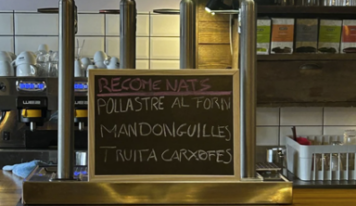 RECOMENATS
POLLASTRE AL FORN
MANDONGUILLES
TRUITA CARXOFES